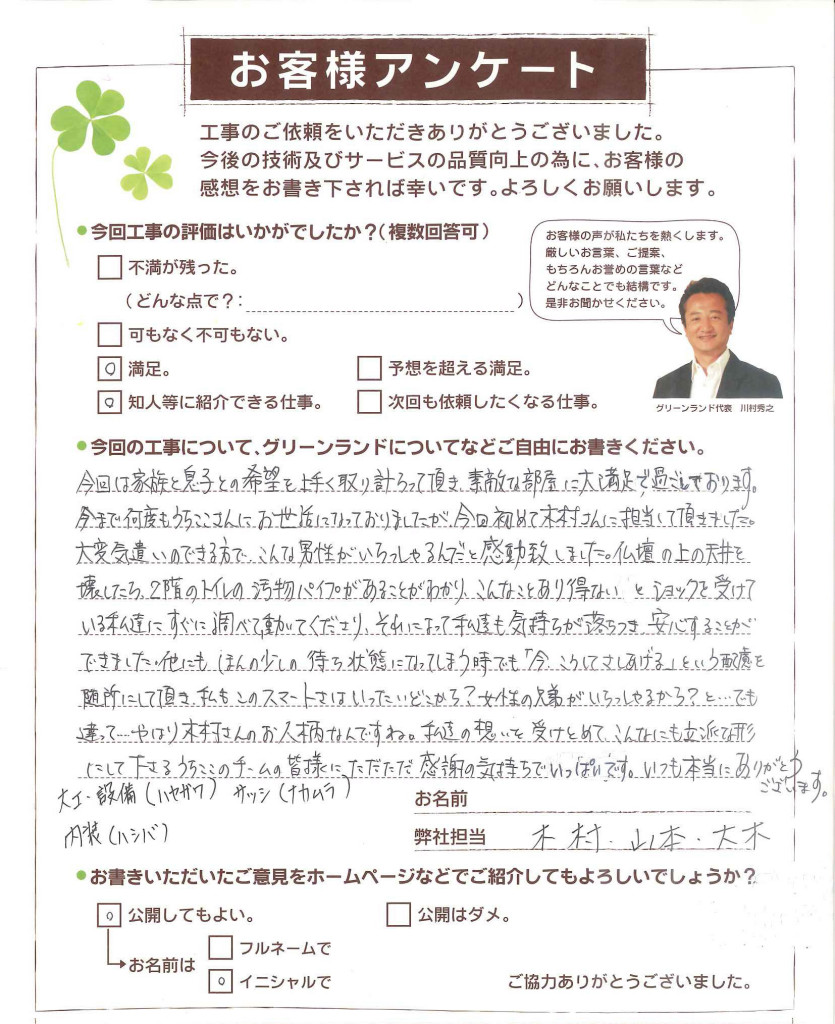 お客様アンケート
工事のご依頼をいただきありがとうございました。
今後の技術及びサービスの品質向上の為に、お客様の
感想をお書き下されば幸いです。よろしくお願いします。
●今回工事の評価はいかがでしたか?(複数回答可)
不満が残った。
(どんな点で?: )
可もなく不可もない。
○ 満足。
予想を超える満足。
○ 知人等に紹介できる仕事。
次回も依頼したくなる仕事。
お客様の声が私たちを熱くします。
厳しいお言葉、ご提案、
もちろんお誉めの言葉など
どんなことでも結構です。
是非お聞かせください。
グリーンランド代表 川村秀之
●今回の工事について、グリーンランドについてなどご自由にお書きください。
今回は家族と息子との希望を上手く取り計らって頂き、素敵な部屋に大満足で過ごしております。
今まで何度もうちここさんにお世話になっておりましたが、今回初めて木村さんに担当して頂きました。
大変気遣いのできる方で、こんな男性がいらっしゃるんだと感動致しました。仏壇の上の天井を
壊したら、2階のトイレの汚物パイプがあることがわかり、こんなことあり得ない と ショックを受けて
いる私達にすぐに調べて動いてくださり、それによって私達も気持ちが落ちつき 安心することが
できました。他にも ほんの少しの 待ち状態になってしまう時でも「今、こうしてさしあげる」という配慮を
随所にして頂き、私も このスマートさはいったいどこから?女性の兄弟がいらっしゃるから?と…でも
違って…やはり木村さんのお人柄なんですね。私達の想いを 受けとめて、こんなにも立派な形
にして下さるうちここのチームの皆様に、ただただ 感謝の気持ちでいっぱいです。いつも本当にありがとう
ございます。
大工・設備(ハヤガワ) サッシ(ナカムラ)
内装(ハシバ)
お名前
弊社担当 木村・山本・大木
●お書きいただいたご意見をホームページなどでご紹介してもよろしいでしょうか?
○ 公開してもよい。
公開はダメ。
お名前は
フルネームで
○ イニシャルで
ご協力ありがとうございました。